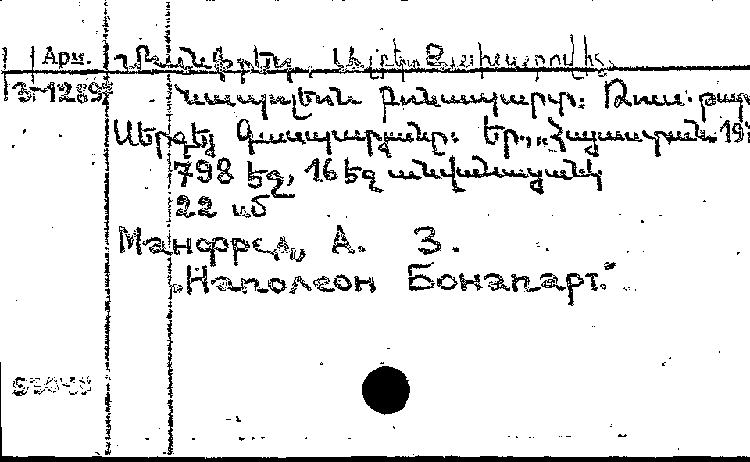 Арм. Մանֆրեդ, Ալբերտ Զախարովիչ.
3-1289 Նապոլեոն Բոնապարտ։ Ռուս. թարգ
Սերգեյ Գասպարյանը։ Եր., „Հայաստան 19
798 եջ, 16 եջ
22 սմ
Манфред, А. З.
„Наполеон Бонапарт.“